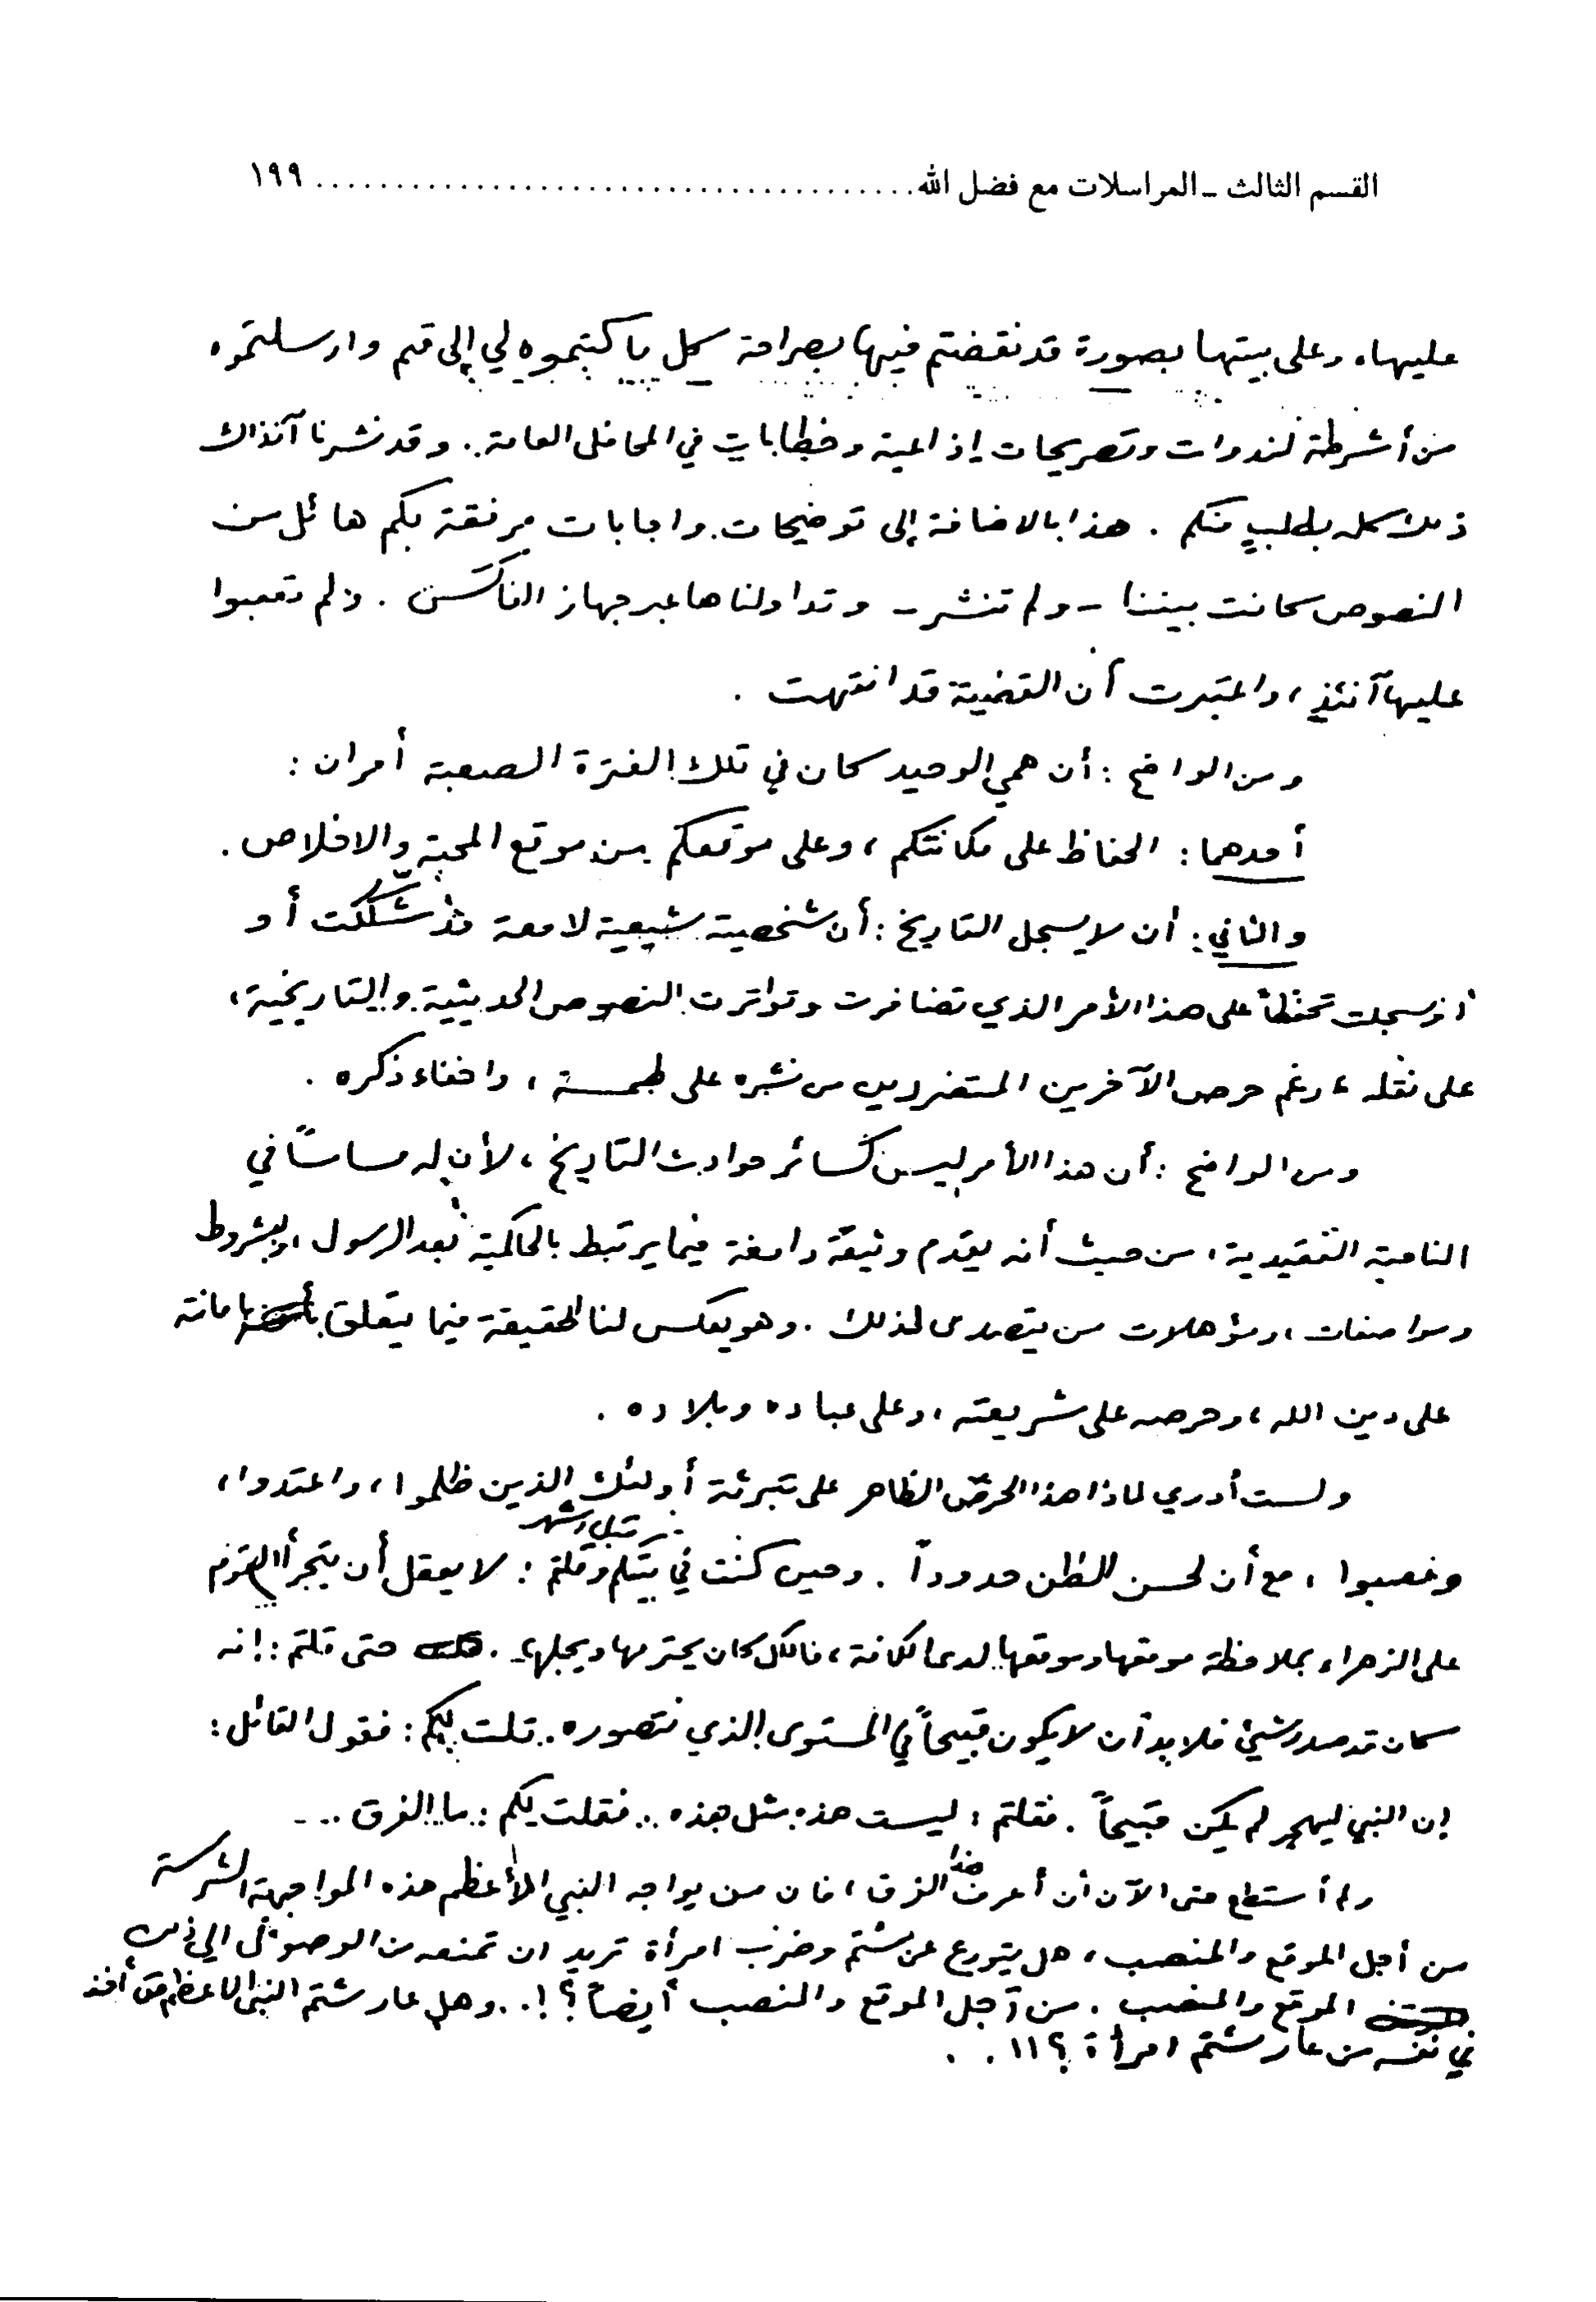 القسم الثالث ـ المراسلات مع فضل الله ........................................ ١٩٩
عليها، وعلى بيتها بصورة قد نقضتم فيها بصراحة كل ما كتبتموه لي إلى قم وارسلتموه
من أشرطة لندوات وتصريحات إذاعية وخطابات في المحافل العامة.. وقد نشرنا آنذاك
ذلك كله بطلبٍ منكم . هذا بالاضافة إلى توضيحات واجابات مرفقة بكم هائل من
النصوص كانت بيننا - ولم تنشر - وتداولناها عبر جهاز الفاكسَن . ولم تعقبوا
عليها آنئذٍ، واعتبرت أن القضية قد انتهت .
ومن الواضح : أن همي الوحيد كان في تلك الفترة الصعبة أمران :
أحدهما : الحفاظ على مكانتكم، وعلى موقعكم من موقع المحبة والاخلاص .
والثاني : أن لا يسجل التاريخ : أن شخصية شيعية لامعة قد شككت أو
أو سجلت تحفظاً على هذا الأمر الذي تضافرت وتواترت النصوص الحديثية والتاريخية،
على نقله، رغم حرص الآخرين المتضررين من نشره على طمسه، واخفاء ذكره .
ومن الواضح : أن هذا الأمر ليس كسائر حوادث التاريخ، لأن له مساساً في
الناحية العقيدية، من حيث أنه يقدم وثيقة دامغة فيما يرتبط بالحاكمية بعد الرسول، وبشروط
ومواصفات، ومؤهلات من يتصدى لذلك . وهو يعكس لنا الحقيقة فيما يتعلق بأمانته
على دين الله، وحرصه على شريعته، وعلى عباده وبلاده .
ولست أدري لماذا هذا الحرص الظاهر على تبرئة أولئك الذين ظلموا، واعتدوا،
وغصبوا، مع أن لحسن الظن حدوداً . وحين كنت في بيتكم قبل شهر وقلتم : لا يعقل أن يتجرأ القوم
على الزهراء بملاحظة موقعها وموقعها لدى الكافة، فالكل كان يحترمها ويجلها . حتى قلتم : إنه
كان قد صدر شيئ فلا بد أن لا يكون قبيحاً في المستوى الذي نتصوره.. قلت لكم : فقول القائل :
إن النبي ليهجر لم يكن قبيحاً . فقلتم : ليست هذه مثل هذه .. فقلت لكم : ما الفرق ..
ولم أستطع حتى الآن أن أعرف هذا الفرق، فان من يواجه النبي الأعظم هذه المواجهة الشرسة
من أجل الموقع والمنصب، هل يتورع عن شتم وضرب امرأة تريد ان تمنعه من الوصول الى ذلك
الموقع والمنصب . من أجل الموقع والمنصب أيضاً؟!.. وهل عار شتم النبي الاعظم أخف
في نفسه من عار شتم امرأة ؟!! . .